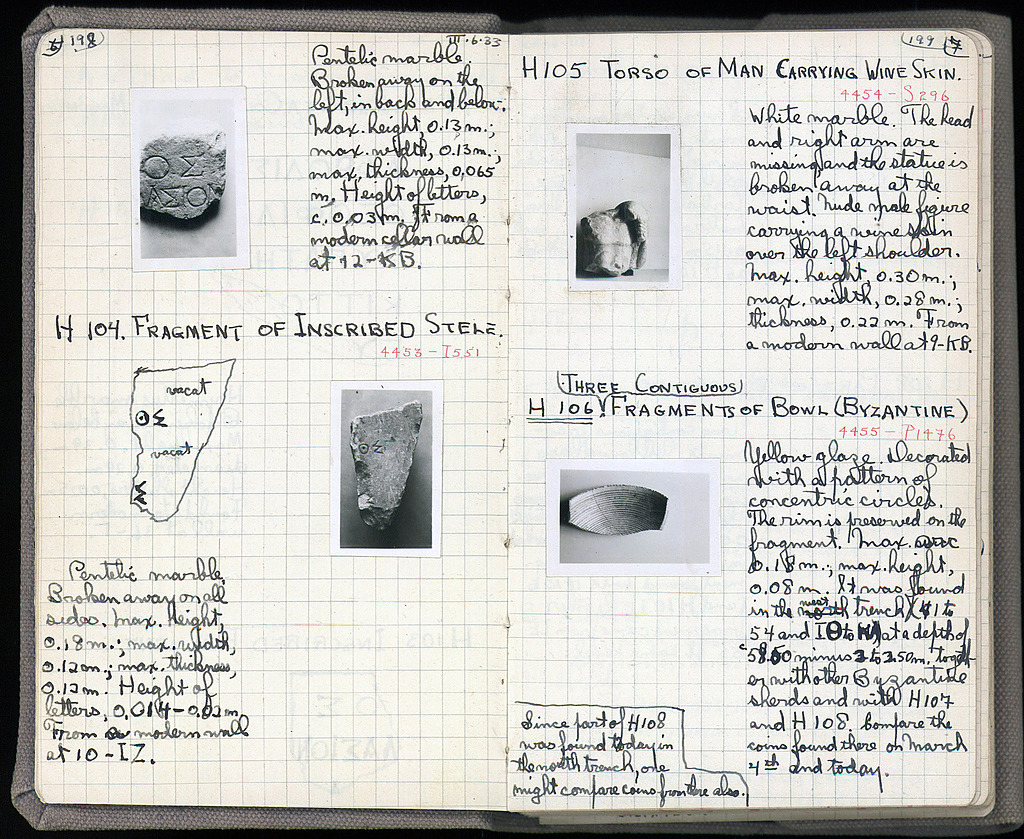 198
III.6.33
Pentelic marble.
Broken away on the
left, in back and below.
Max. height, 0.13 m.;
max. width, 0.13 m.;
max. thickness, 0.065
m. Height of letters,
c. 0.03 m. From a
modern cellar wall
at 12-KB.
ΟΣ
ΑΣΙΟΝ
H 104. FRAGMENT OF INSCRIBED STELE.
4453 - I 551
vacat
ΟΣ
vacat
Σ
ΟΣ
Pentelic marble.
Broken away on all
sides. Max. height,
0.18 m.; max. width,
0.12 m.; max. thickness,
0.12 m. Height of
letters, 0.014-0.02 m.
From a modern wall
at 10-IZ.
199 7
H105 TORSO OF MAN CARRYING WINE SKIN.
4454 - S 296
White marble. The head
and right arm are
missing and the statue is
broken away at the
waist. Nude male figure
carrying a wine skin
over the left shoulder.
Max. height, 0.30 m.;
max. width, 0.28 m.;
thickness, 0.22 m. From
a modern wall at 9-KB.
(THREE CONTIGUOUS)
H 106. FRAGMENTS OF BOWL (BYZANTINE)
4455 - P1476
Yellow glaze. Decorated
with a pattern of
concentric circles.
The rim is preserved on the
fragment. Max.
0.18 m.; max. height,
0.08 m. It was found
in the west trench (41 to
54 and to at a depth of
minus to 2.50 m. togeth
er with other Byzantine
sherds and with H107
and H108. Compare the
coins found there on March
4th and today.
Since part of H108
was found today in
the north trench, one
might compare coins from there also.